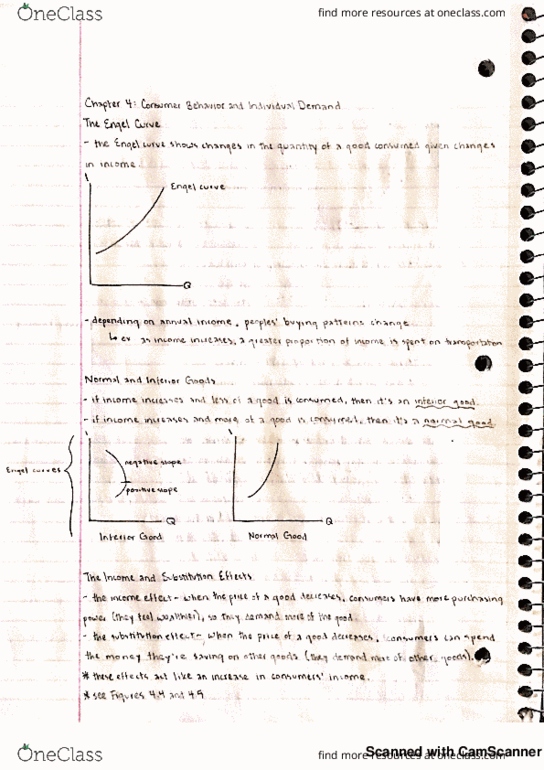 OneClass
find more resources at oneclass.com
Chapter 4: Consumer Behavior and Individual Demand
The Engel Curve
- the Engel curve shows changes in the quantity of a good consumed given changes
in income.
I
Engel curve
Q
- depending on annual income, peoples' buying patterns change
↳ ex as income increases, a greater proportion of income is spent on transportation
Normal and Inferior Goods
- if income increases and less of a good is consumed, then it's an inferior good.
- if income increases and more of a good is consumed, then it's a normal good.
Engel curves
I
negative slope
positive slope
Q
Inferior Good
I
Q
Normal Good
The Income and Substitution Effects
- the income effect - when the price of a good decreases, consumers have more purchasing
power (they feel wealthier), so they demand more of the good.
- the substitution effect - when the price of a good decreases, consumers can spend
the money they're saving on other goods (they demand more of other goods).
* these effects act like an increase in consumers' income.
* see Figures 4.4 and 4.5
OneClass
find more resources at oneclass.com
Scanned with CamScanner